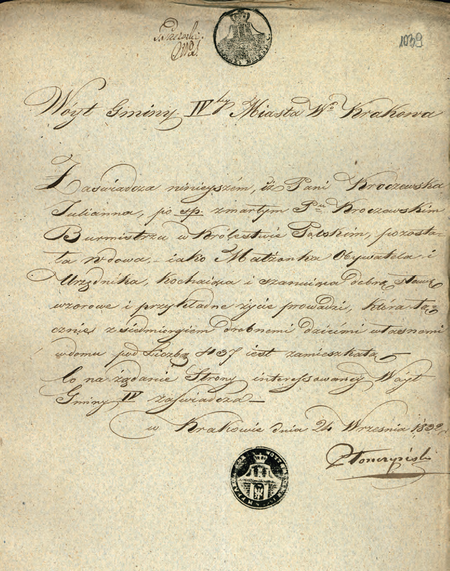 1039
Wóyt Gminy IVtéy Miasta Wo Krakowa
Zaświadcza ninieyszém, iż Pani Kroczewska
Julianna, po śp. zmarłym Pu Kroczewskim
Burmistrzu w Królestwie Polskiem, pozosta-
ła wdowa, iako Małżonka Obywatela i
Urzędnika, kochaiąca i szanuiąca dobrą sławę
wzorowe i przykładne życie prowadzi, która łą-
cznie z drobnemi dziećmi własnemi
w domu pod Liczbą 437 iest zamieszkałą
Co na żądanie Strony interessowaney Wóyt
Gminy IV zaświadcza
w Krakowie dnia 24 Września